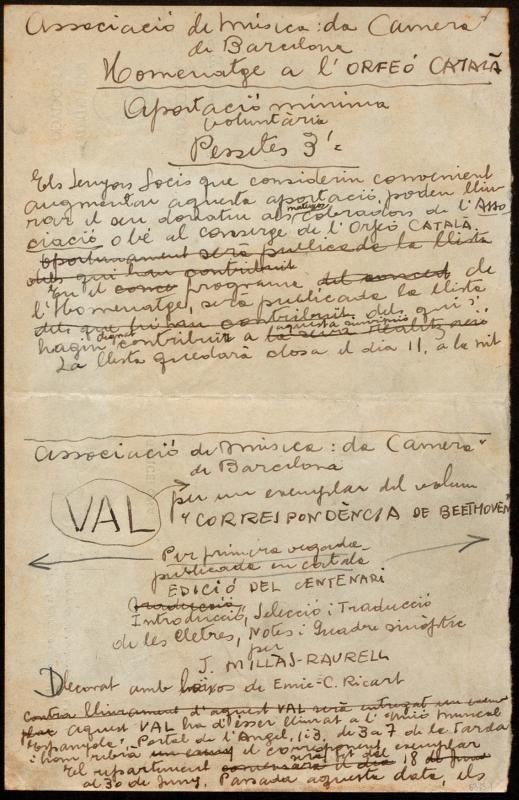 Associació de Música "da Camera"
de Barcelona
Homenatge a l'ORFEÓ CATALÀ
Aportació mínima
voluntària
Pessetes 3'=
Els senyors Socis que considerin convenient
augmentar aquesta aportació, poden lliu-
rar el seu donatiu als mateixos cobradors de l'Asso-
ciació o bé al conserge de l'Orfeó CATALÀ.
oportunament serà publicada la llista
dels qui hau contribuit
En el programa de
l'Homenatge, serà publicada la llista
dels que hi hau contribuit dels qui s'
hagin dignat contribuir a aquesta suscripció la seva realització
La llista quedarà closa el dia 11, a la nit
Associació de Música "da Camera"
de Barcelona
VAL per un exemplar del volum
"CORRESPONDÈNCIA DE BEETHOVEN"
Per primera vegada
publicada en català
EDICIÓ DEL CENTENARI
Traducció
Introducció, Selecció i Traducció
de les Lletres, Notes i Quadre sinòptic
per
J. MILLÀS-RAURELL
Decorat amb boixos de Enric-C. Ricart
Contra lliurament d'aquest VAL serà entregat un exem
plar Aquest VAL ha d'ésser lliurat a l'Unió Musical
Espanyola, Portal de l'Angel, 1 i 3, de 3 a 7 de la tarda
i hom rebrà el corresponent exemplar
El repartiment serà fet del comensarà el dia 18 de Juny
al 30 de Juny. Passada aquesta data, els